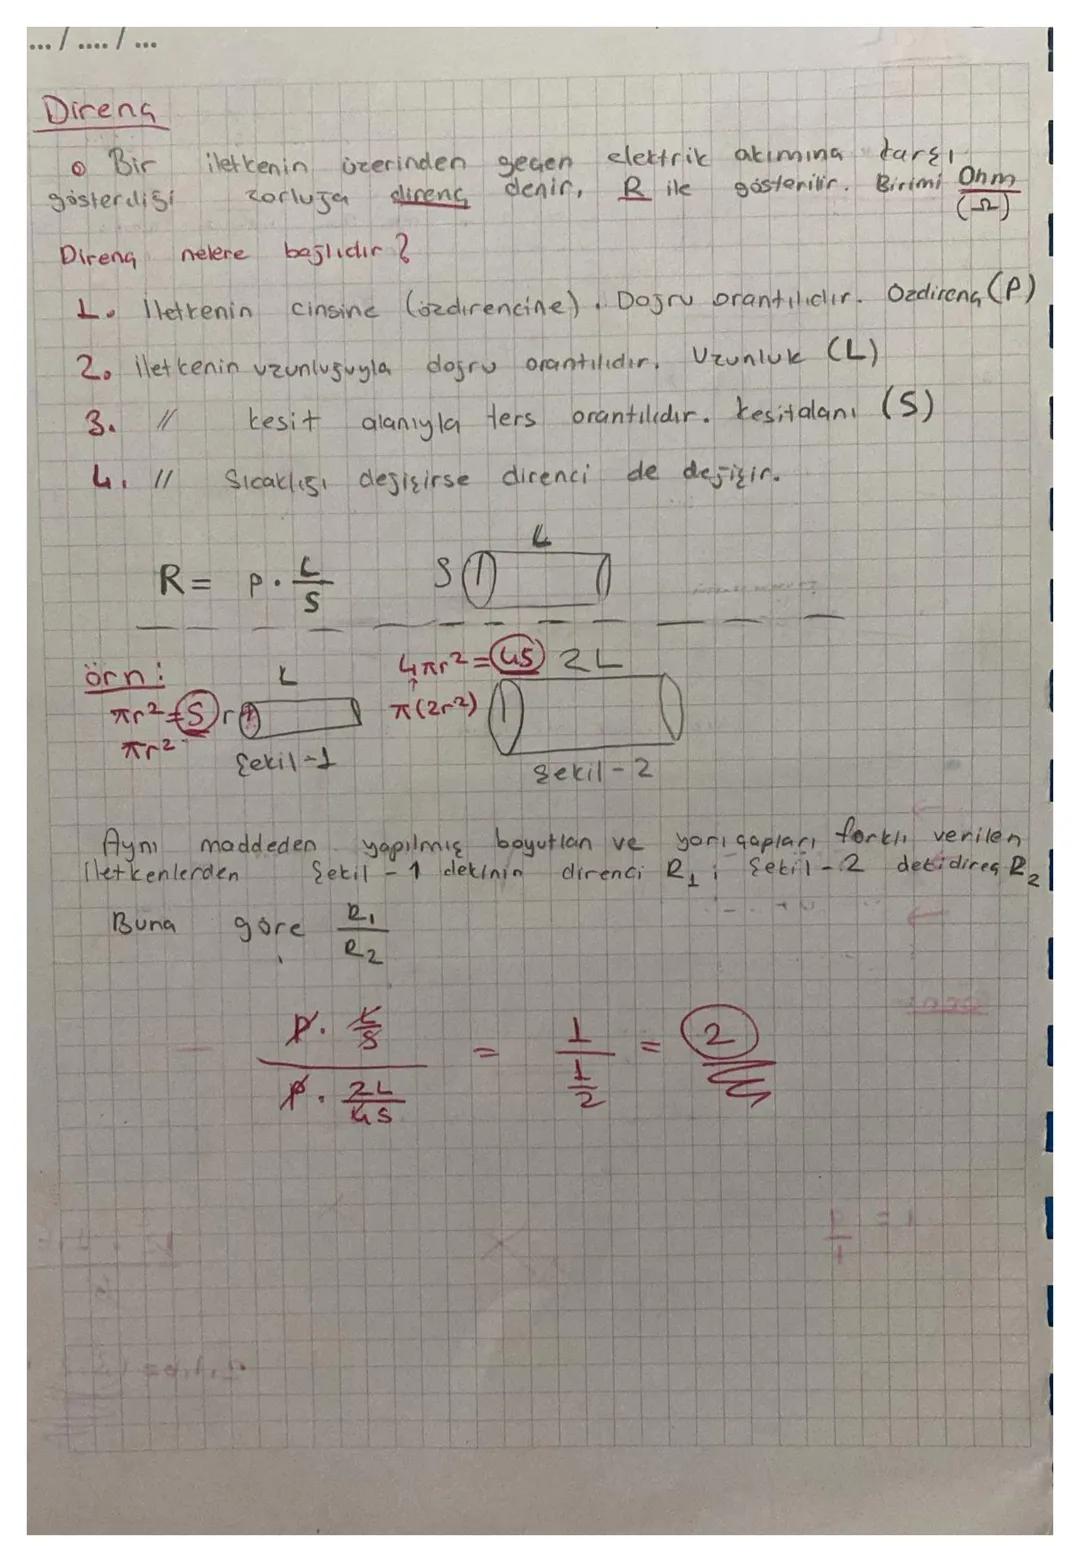 ... / .... / ...
Direnç
o Bir iletkenin üzerinden geçen elektrik akımına karşı
gösterdiği zorluğa direnç denir, R ile gösterilir. Birimi Ohm
(Ω)
Direnç nelere bağlıdır?
1. İletkenin cinsine (özdirencine). Doğru orantılıdır. Özdirenç (P)
2. iletkenin uzunluğuyla doğru orantılıdır. Uzunluk (L)
3. // kesit alanıyla ters orantılıdır. kesitalanı (S)
4. // Sıcaklığı değişirse direnci de değişir.
L
R = P . L/S S
örn: L 4πr² = 4S 2L
πr² = S r π(2r²)
πr²
Şekil-1 Şekil-2
Aynı maddeden yapılmış boyutları ve yarıçapları farklı verilen
İletkenlerden Şekil-1 dekinin direnci R₁; Şekil-2 dekidireç R₂
Buna göre R₁/R₂
P . L/S / P . 2L/4S = 1 / 1/2 = 2